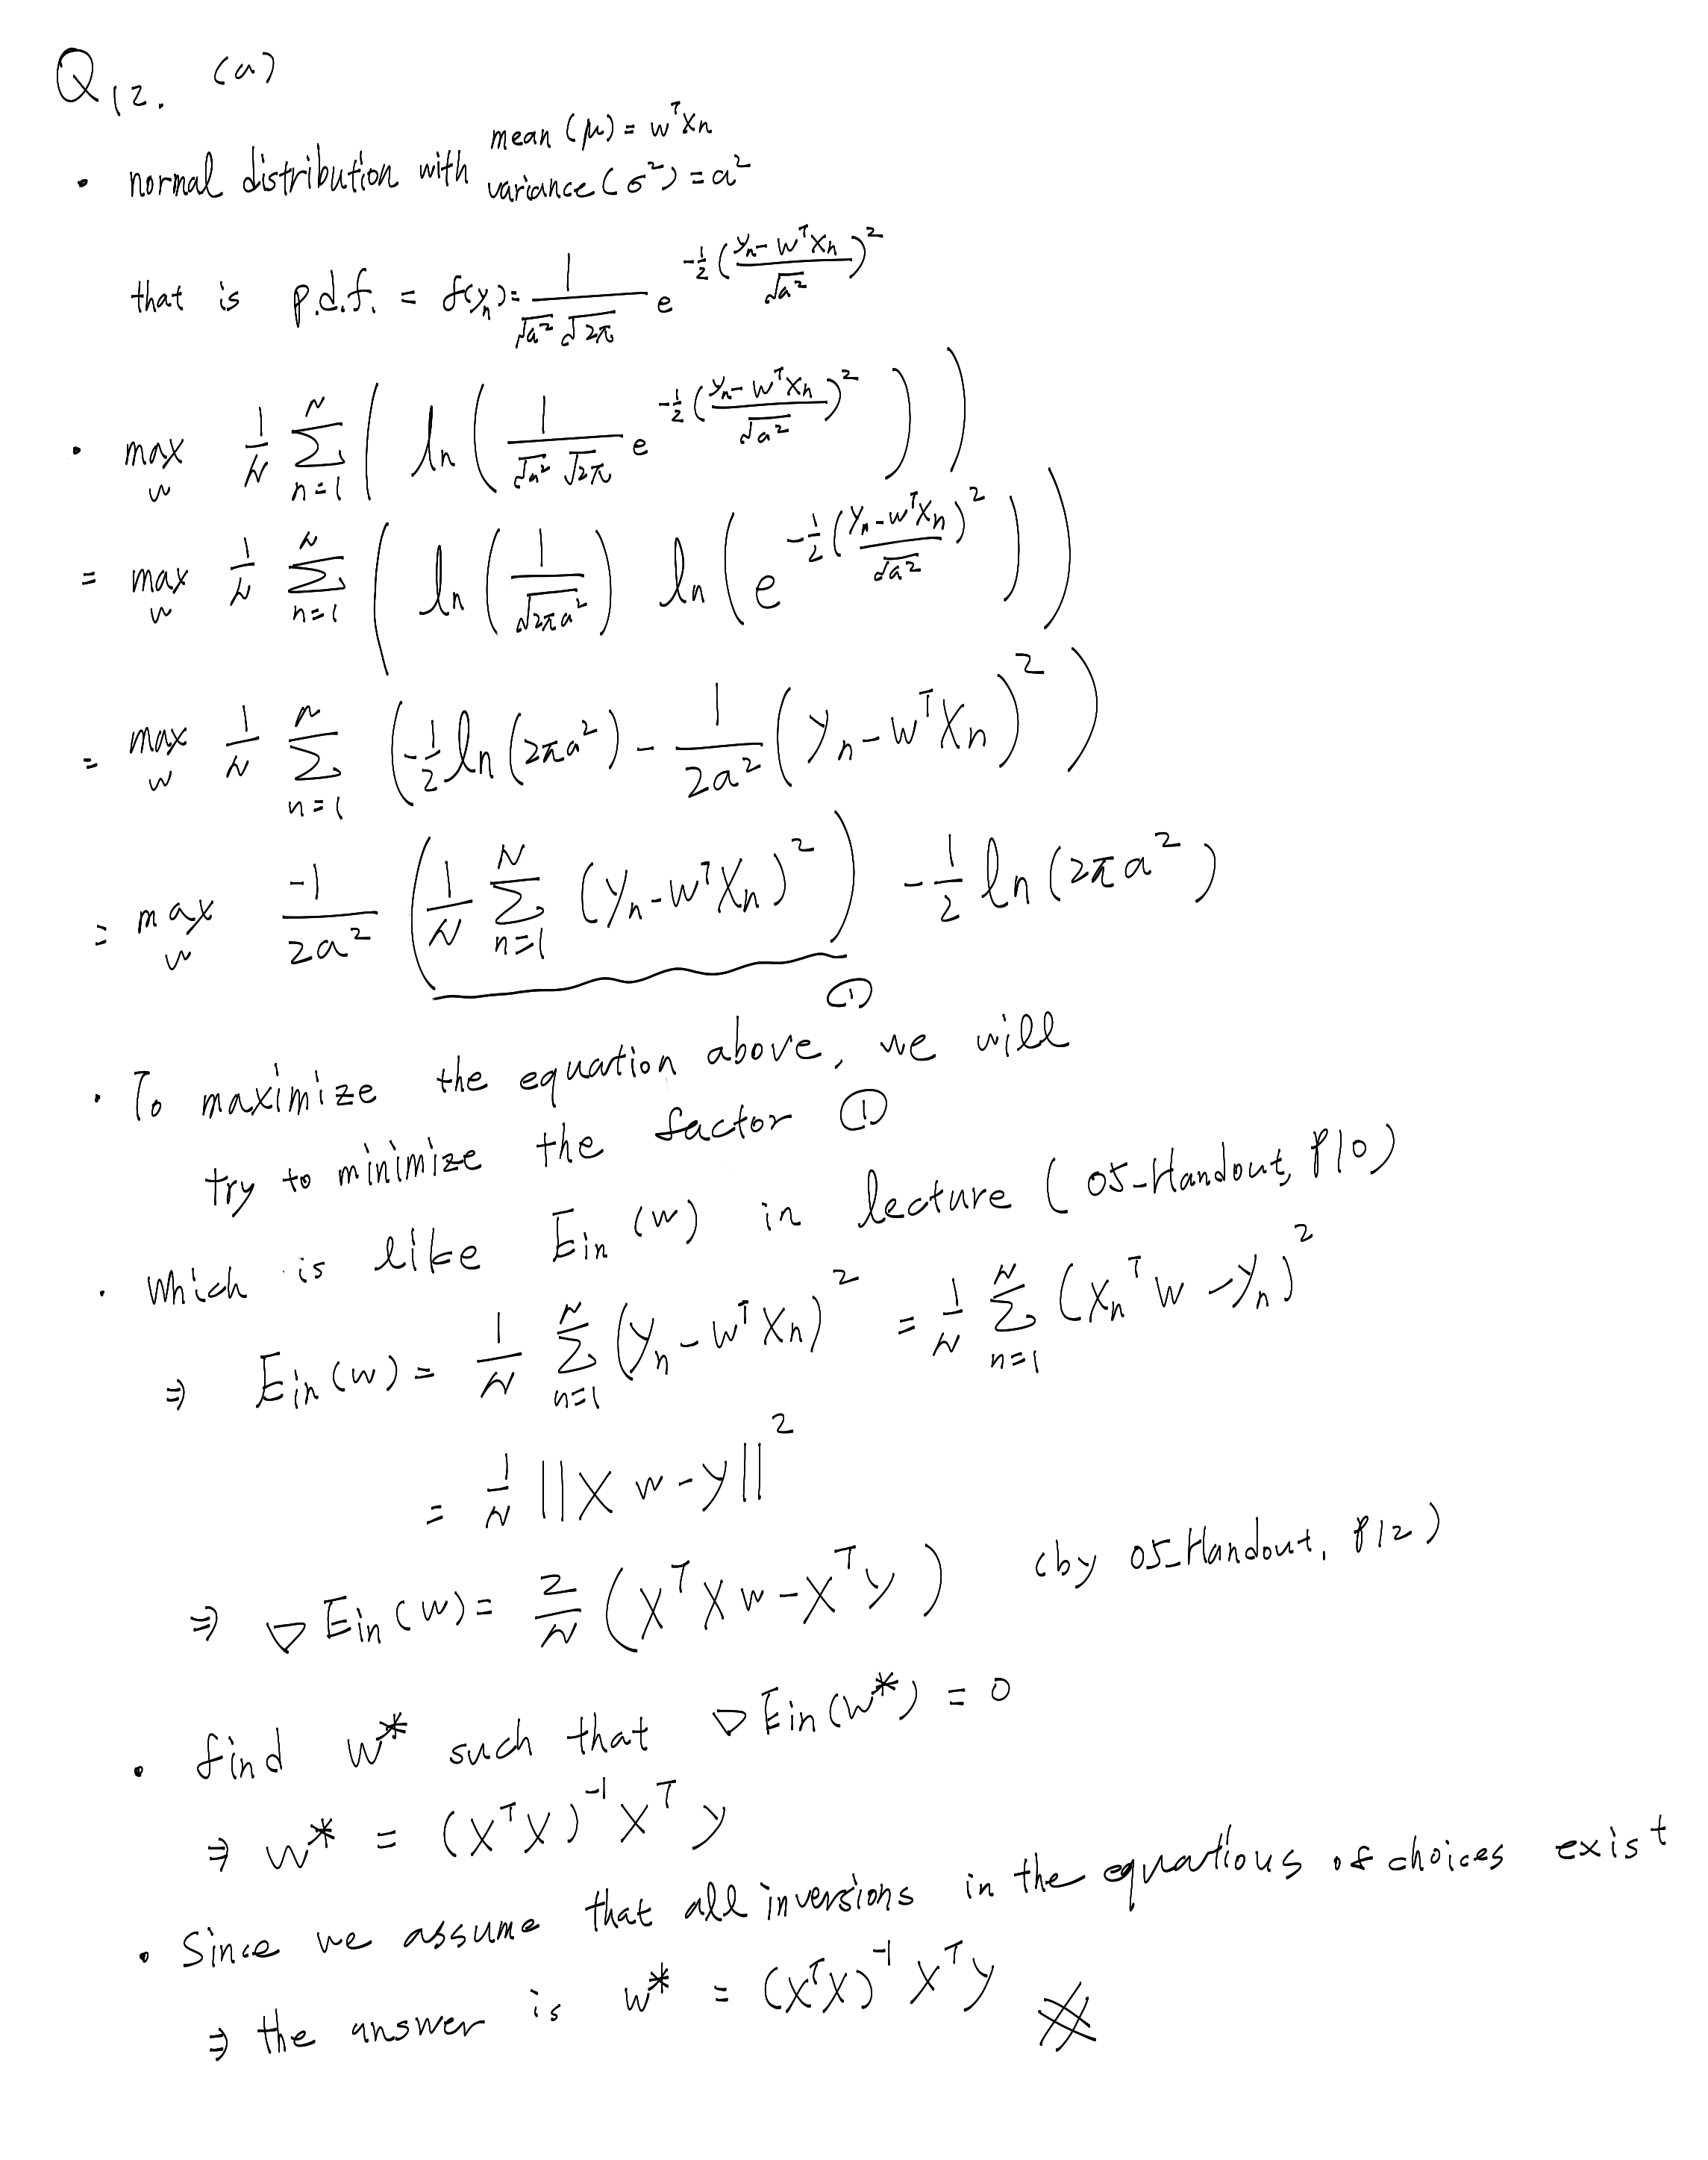 Q12. (a)
• normal distribution with mean (μ) = wᵀxₙ
variance (σ²) = a²
that is p.d.f. = f(yₙ) = 1/(√a² √2π) e^(-½((yₙ - wᵀxₙ)/√a²)²)
• max_w 1/N Σ_{n=1}^{N} ( ln ( 1/(√a² √2π) e^(-½((yₙ - wᵀxₙ)/√a²)²) ) )
= max_w 1/N Σ_{n=1}^{N} ( ln ( 1/√(2πa²) ) ln ( e^(-½((yₙ - wᵀxₙ)/√a²)²) ) )
= max_w 1/N Σ_{n=1}^{N} ( -½ ln (2πa²) - 1/(2a²) (yₙ - wᵀxₙ)² )
= max_w -1/(2a²) ( 1/N Σ_{n=1}^{N} (yₙ - wᵀxₙ)² ) - ½ ln (2πa²)
①
• To maximize the equation above, we will
try to minimize the factor ①
• Which is like Ein (w) in lecture ( 05_Handout, P10)
⇒ Ein (w) = 1/N Σ_{n=1}^{N} (yₙ - wᵀxₙ)² = 1/N Σ_{n=1}^{N} (xₙᵀw - yₙ)²
= 1/N ||Xw - y||²
⇒ ∇Ein (w) = 2/N (XᵀXw - Xᵀy) (by 05_Handout, P12)
• find w* such that ∇Ein (w*) = 0
⇒ w* = (XᵀX)⁻¹Xᵀy
• Since we assume that all inversions in the equations of choices exist
⇒ the answer is w* = (XᵀX)⁻¹Xᵀy #